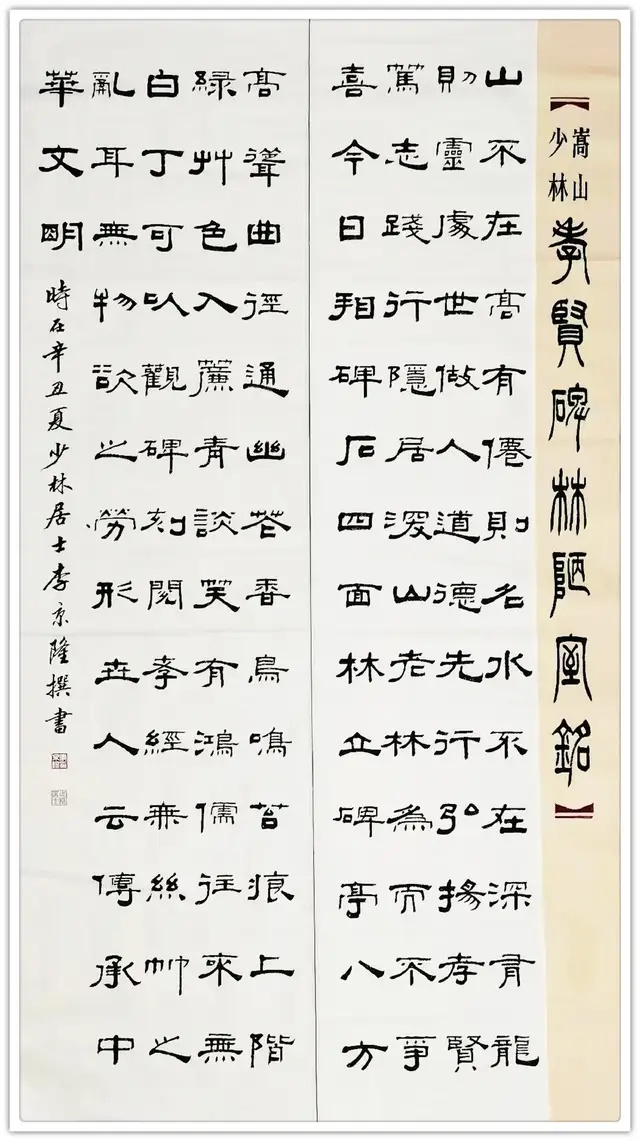 嵩山
少林
孝賢碑林陋室銘
山不在高有僊則名水不在深有龍
則靈處世做人道德先行弘揚孝賢
篤志踐行隱居深山老林為而不爭
喜今日相碑石四面林立碑亭八方
高聳曲徑通幽花香鳥鳴苔痕上階
綠艸色入簾青談笑有鴻儒往來無
白丁可以觀碑刻閱孝經無絲竹之
亂耳無物欲之勞形世人云傳承中
華文明
時在辛丑夏少林居士李京隆撰書